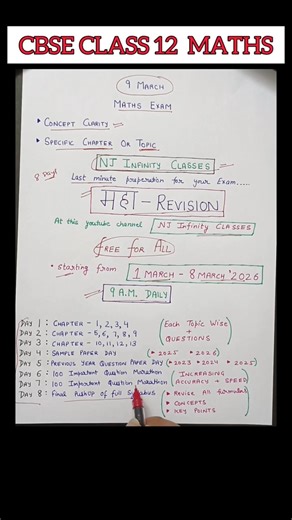 CBSE CLASS 12 MATHS
9 MARCH
MATHS EXAM
• CONCEPT CLARITY
• SPECIFIC CHAPTER OR TOPIC
NJ INFINITY CLASSES
8 Days
Last minute preparation for your Exam.....
महा - REVISION
At this youtube channel NJ Infinity CLASSES
free for All
• starting from
1 MARCH - 8 MARCH '2026
9 A.M. DAILY
DAY 1 : CHAPTER - 1, 2, 3, 4
DAY 2 : CHAPTER - 5, 6, 7, 8, 9
DAY 3 : CHAPTER - 10, 11, 12, 13
Each Topic Wise
+
QUESTIONS
DAY 4 : SAMPLE PAPER DAY (• 2025 • 2026)
DAY 5 : PREVIOUS YEAR QUESTION PAPER DAY (• 2023 • 2024 • 2025)
DAY 6 : 100 Important Question Marathon
DAY 7 : 100 Important Question Marathon
INCREASING
ACCURACY + SPEED
DAY 8 : Final Pushup of full Syllabus
▸ Revise All formulas
▸ CONCEPTS
▸ KEY POINTS